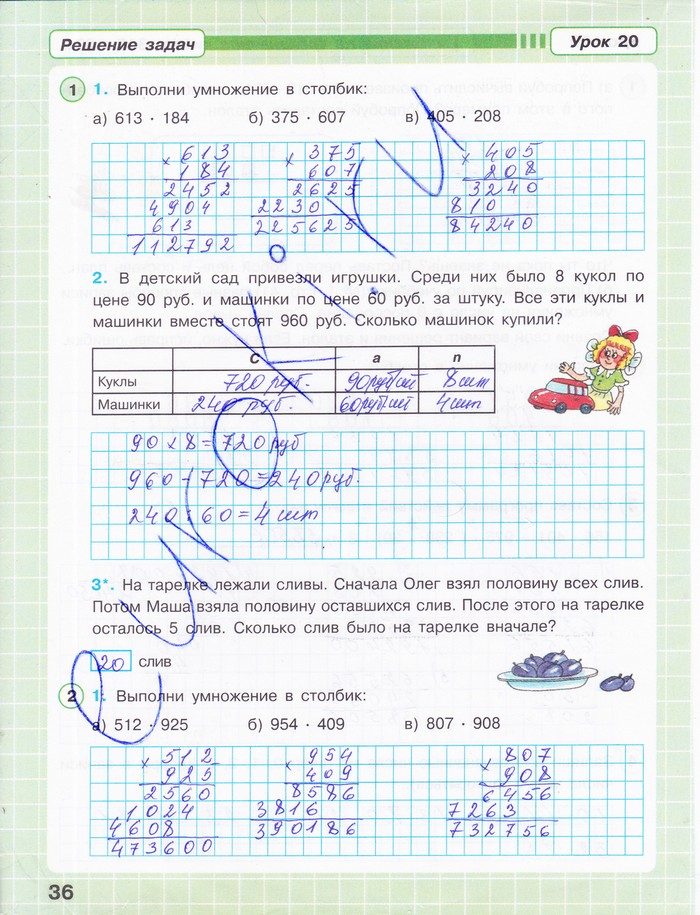 Решение задач
Урок 20
1
1. Выполни умножение в столбик:
а) 613 · 184 б) 375 · 607 в) 405 · 208
× 613 × 375 × 405
184 607 208
2452 2625 3240
4904 2230 810
613 225625 84240
112792
2. В детский сад привезли игрушки. Среди них было 8 кукол по
цене 90 руб. и машинки по цене 60 руб. за штуку. Все эти куклы и
машинки вместе стоят 960 руб. Сколько машинок купили?
С а n
Куклы 720 руб. 90руб/шт 8шт
Машинки 240 руб. 60руб/шт 4шт
90 × 8 = 720 руб
960 - 720 = 240 руб.
240 : 60 = 4 шт
3*. На тарелке лежали сливы. Сначала Олег взял половину всех слив.
Потом Маша взяла половину оставшихся слив. После этого на тарелке
осталось 5 слив. Сколько слив было на тарелке вначале?
20 слив
2
1. Выполни умножение в столбик:
а) 512 · 925 б) 954 · 409 в) 807 · 908
× 512 × 954 × 807
925 409 908
2560 8586 6456
1024 3816 7263
4608 390186 732756
473600
36